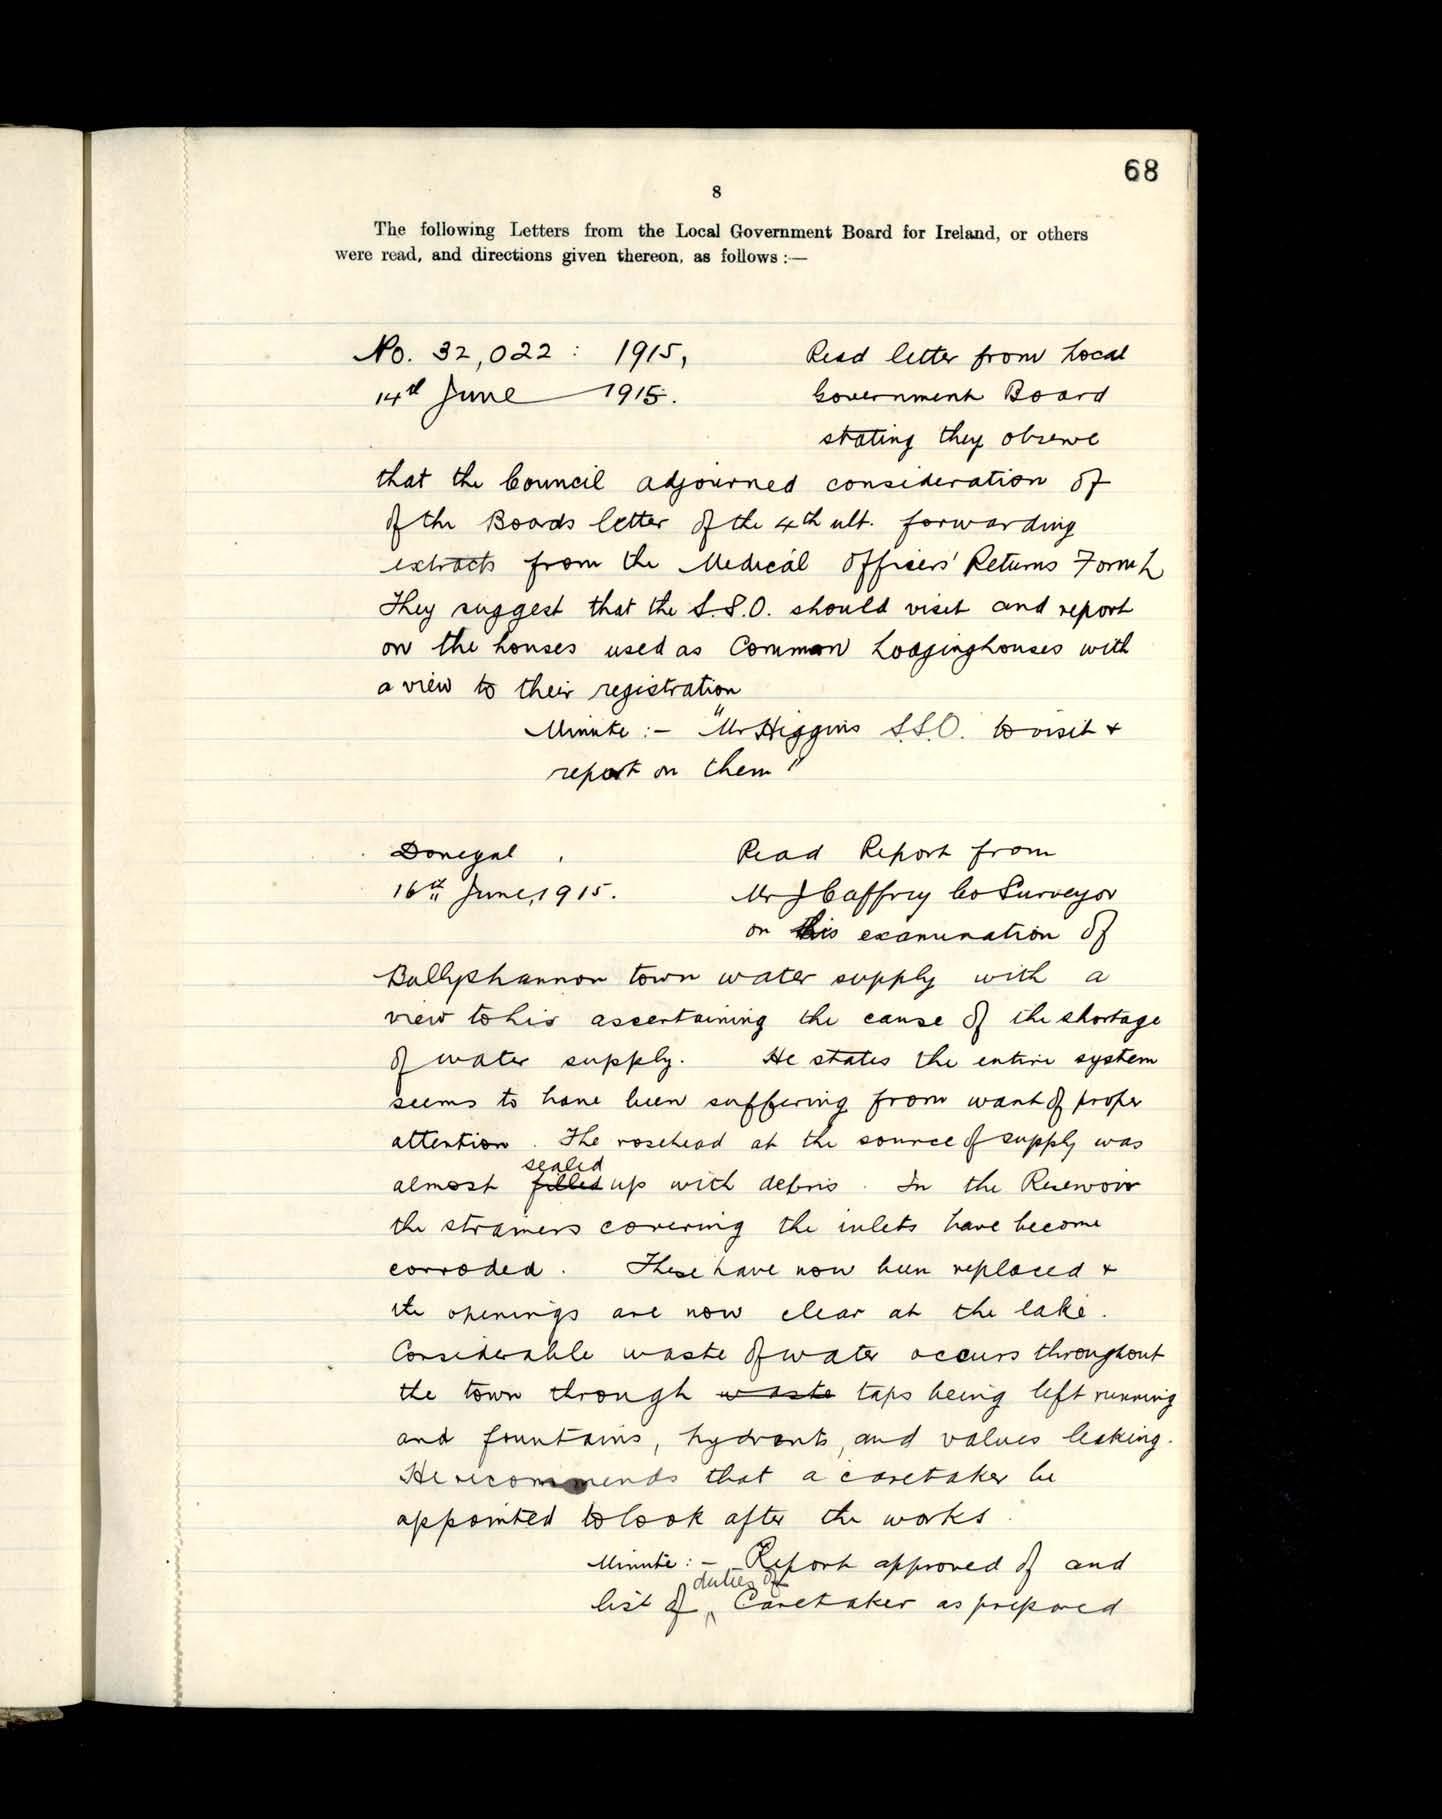 68
8
The following Letters from the Local Government Board for Ireland, or others
were read, and directions given thereon, as follows :—
No. 32,022 : 1915,
Read letter from Local
14th June 1915.
Government Board
stating they observe
that the Council adjourned consideration of
of the Boards letter of the 4th ult. forwarding
extracts from the Medical Officers' Returns Form L
They suggest that the S.S.O. should visit and report
on the houses used as Common Lodginghouses with
a view to their registration
Minute :- "Mr Higgins S.S.O. to visit +
report on them"
Donegal,
Read Report from
16th June, 1915.
Mr J Caffrey Co Surveyor
on his examination of
Ballyshannon town water supply with a
view to his ascertaining the cause of the shortage
of water supply. He states the entire system
seems to have been suffering from want of proper
attention. The rosehead at the source of supply was
sealed
almost filled up with debris. In the Reservoir
the strainers covering the inlets have become
corroded. These have now been replaced +
the openings are now clear at the lake.
Considerable waste of water occurs throughout
the town through waste taps being left running
and fountains, hydrants, and valves leaking.
He recommends that a caretaker be
appointed to look after the works.
Minute :- Report approved of and
duties of
list of Caretaker as prepared